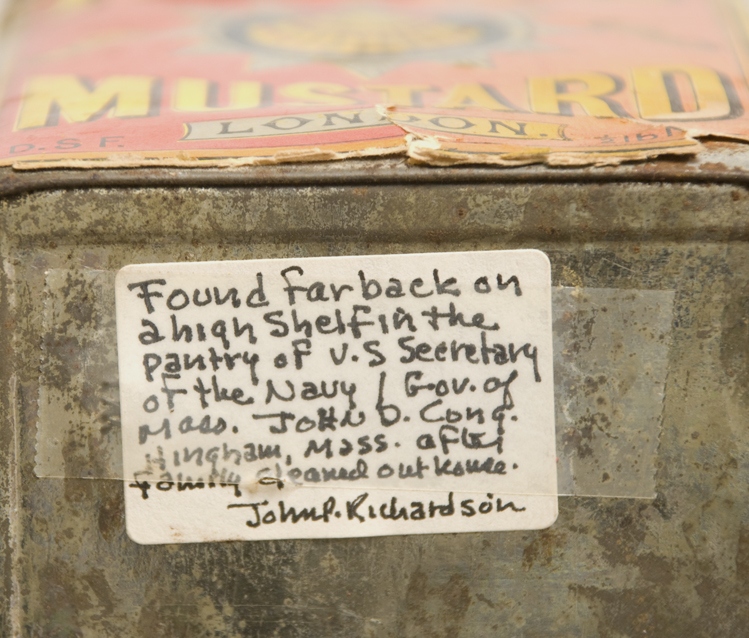 MUSTARD
D.S.F. LONDON.
Found far back on
a high Shelf in the
pantry of U.S Secretary
of the Navy / Gov. of
Mass. JOHN D. Long.
Hingham, Mass. after
family cleaned out house.
John P. Richardson